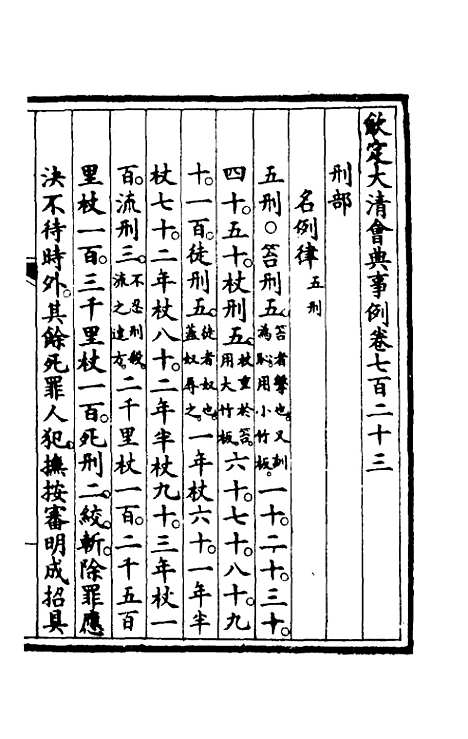 欽定大清會典事例卷七百二十三
刑部
名例律五刑
五刑○笞刑五。笞者擊也。又訓為恥。用小竹板。一十。二十。三十。
四十。五十。杖刑五。杖重於笞。用大竹板。六十。七十。八十。九
十。一百。徒刑五。徒者奴也。蓋奴辱之。一年杖六十。一年半
杖七十。二年杖八十。二年半杖九十。三年杖一
百。流刑三。不忍刑殺。流之遠方。二千里杖一百。二千五百
里杖一百。三千里杖一百。死刑二。絞。斬。除罪應
決不待時外。其餘死罪人犯。撫按審明成招具